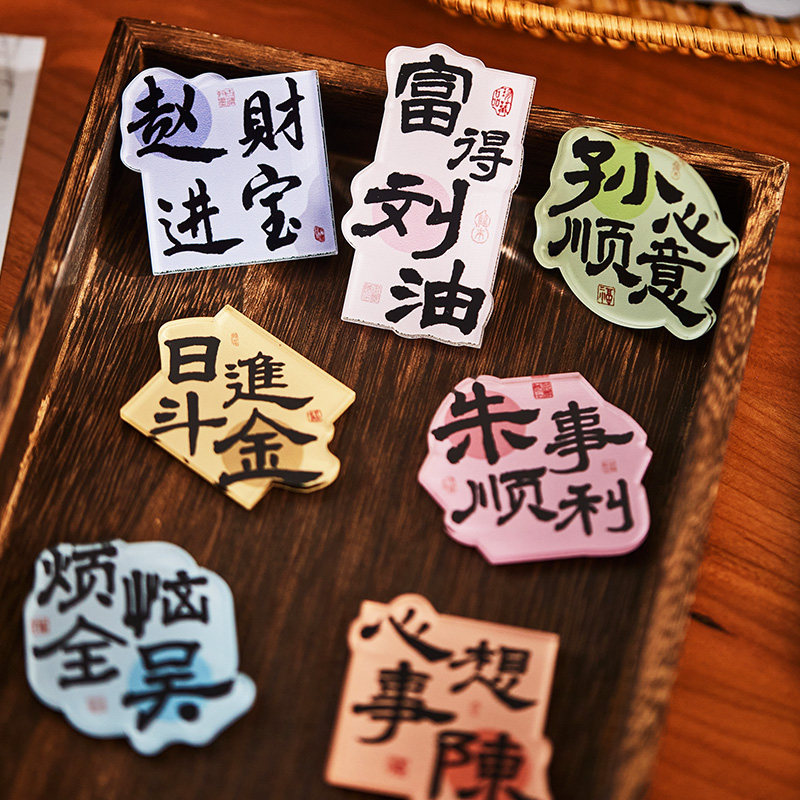 赵財
进宝
富
得
刘
油
孙心
顺意
日進
斗金
朱事
顺利
烦恼
全吴
心想
事陳